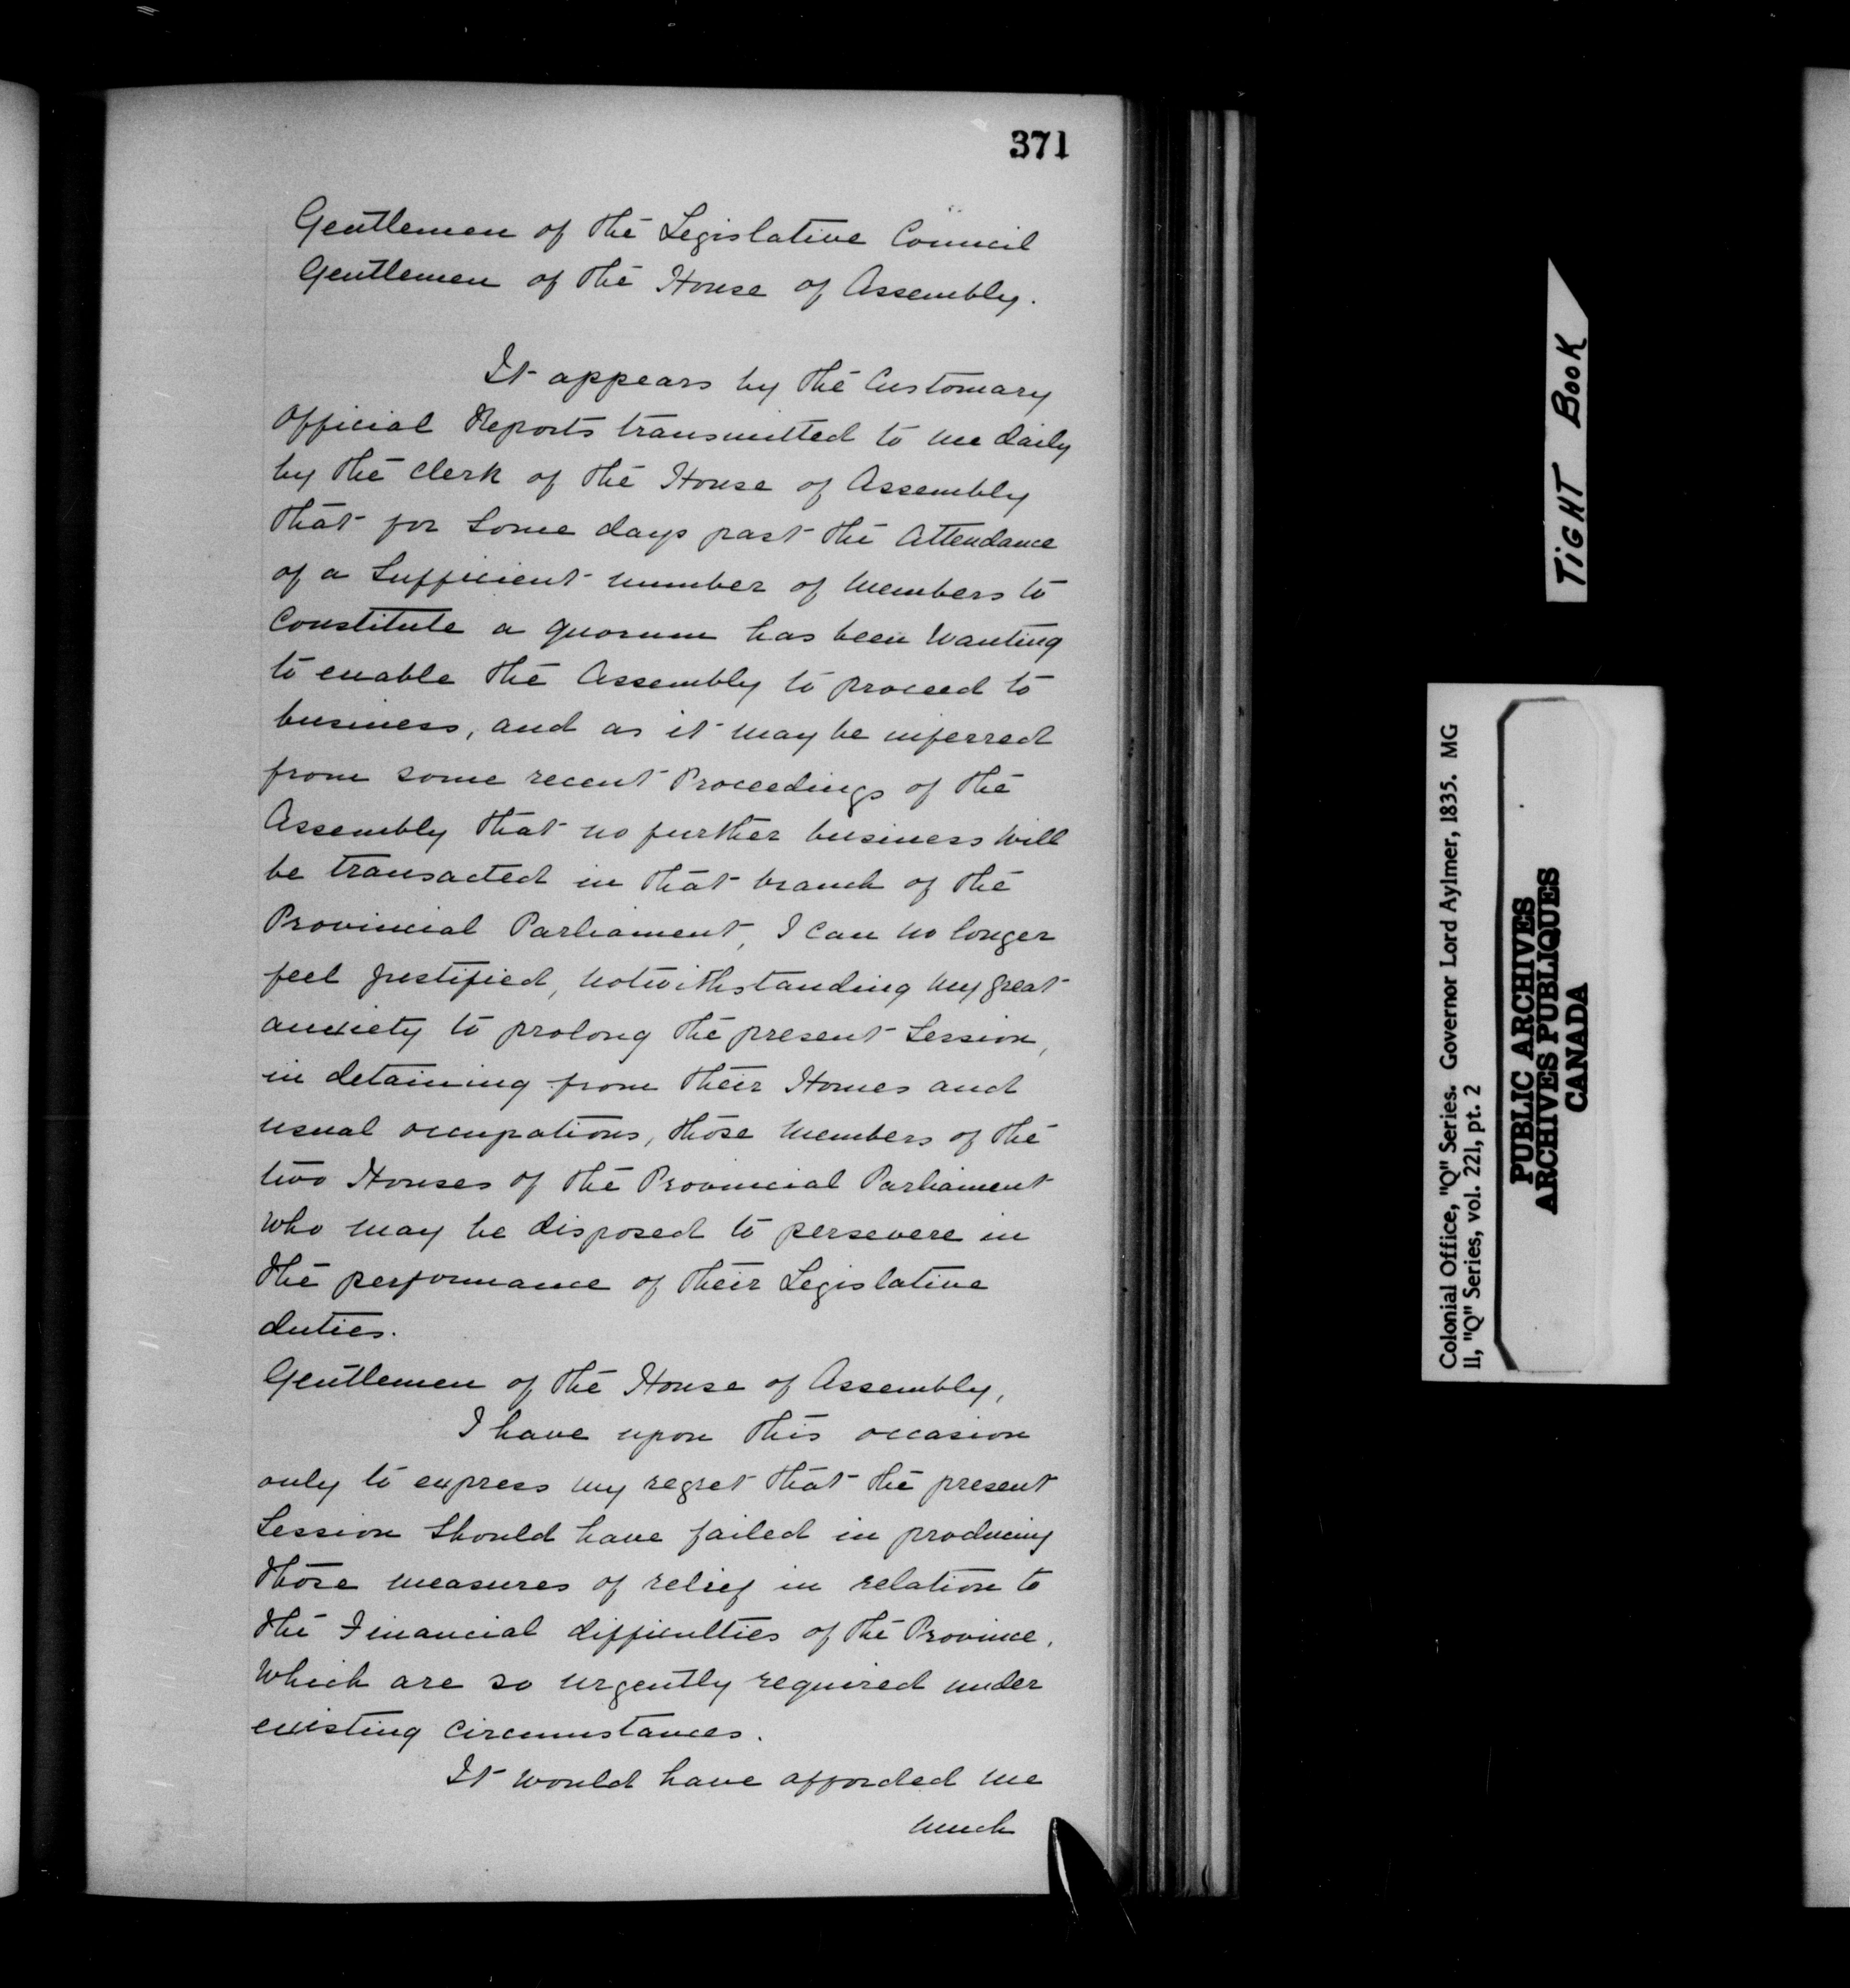 371
Gentlemen of the Legislative Council
Gentlemen of the House of Assembly.
It appears by the Customary
Official Reports transmitted to me daily
by the Clerk of the House of Assembly
that for some days past the Attendance
of a Sufficient number of Members to
Constitute a quorum has been Wanting
to enable the Assembly to proceed to
business, and as it may be inferred
from some recent Proceedings of the
Assembly that no further business Will
be transacted in that branch of the
Provincial Parliament, I Can no longer
feel justified, notwithstanding my great
anxiety to prolong the present Session,
in detaining from their Homes and
usual occupations, those Members of the
two Houses of the Provincial Parliament
Who may be disposed to persevere in
the performance of their Legislative
duties.
Gentlemen of the House of Assembly,
I have upon this occasion
only to express my regret that the present
Session Should have failed in producing
those measures of relief in relation to
the Financial difficulties of the Province,
Which are so urgently required under
existing Circumstances.
It Would have afforded me
much
TIGHT BOOK
Colonial Office, "Q" Series. Governor Lord Aylmer, 1835. MG
11, "Q" Series, vol. 221, pt. 2
PUBLIC ARCHIVES
ARCHIVES PUBLIQUES
CANADA